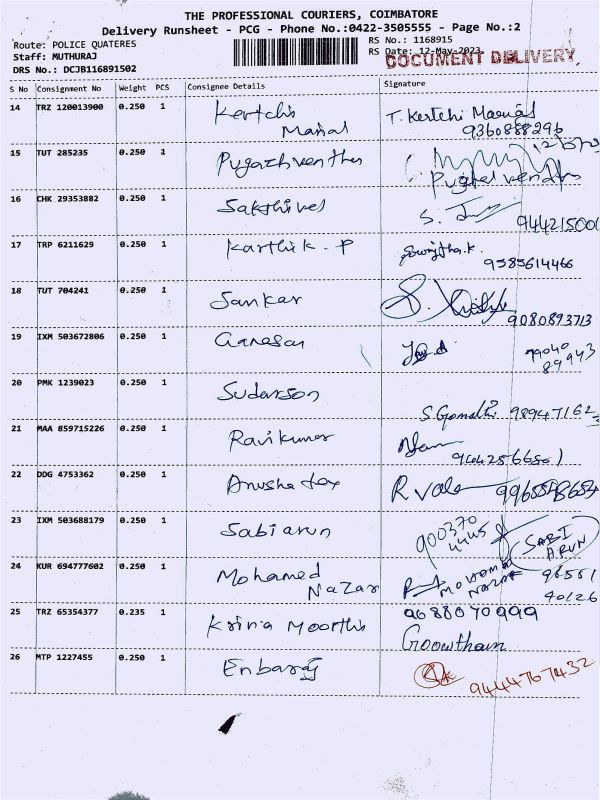 THE PROFESSIONAL COURIERS, COIMBATORE
Delivery Runsheet - PCG - Phone No.:0422-3505555 - Page No.:2
Route: POLICE QUATERES
RS No.: 1168915
Staff: MUTHURAJ
RS Date: 12-May-2023
DOCUMENT DELIVERY
DRS No.: DCJB116891502
S No Consignment No Weight PCS Consignee Details Signature
14 TRZ 120013900 0.250 1 Kertchi Manal T. Kertchi
9360888296
15 TUT 285235 0.250 1 Pugazhventhen
16 CHK 29353882 0.250 1 Sakthivel S.
944215001
17 TRP 6211629 0.250 1 Karthik. P Sowmitha.k.
9585614466
18 TUT 704241 0.250 1 Sankar S.
9080893713
19 IXM 503672806 0.250 1 Ganesan 99040
89943
20 PMK 1239023 0.250 1 Sudarson
S. Gomathi 98947162
21 MAA 859715226 0.250 1 Ravikumar
22 DDG 4753362 0.250 1 Anusha tex R
23 IXM 503688179 0.250 1 Sabiarun 900370
4445 SABI
ARUN
24 KUR 694777602 0.250 1 Mohamed
Nazar MOHAMED
NAZAR 96551
40126
25 TRZ 65354377 0.235 1 Krisna Moorthi 9688070999
Goowtham
26 MTP 1227455 0.250 1 Enbaraj
9444767432